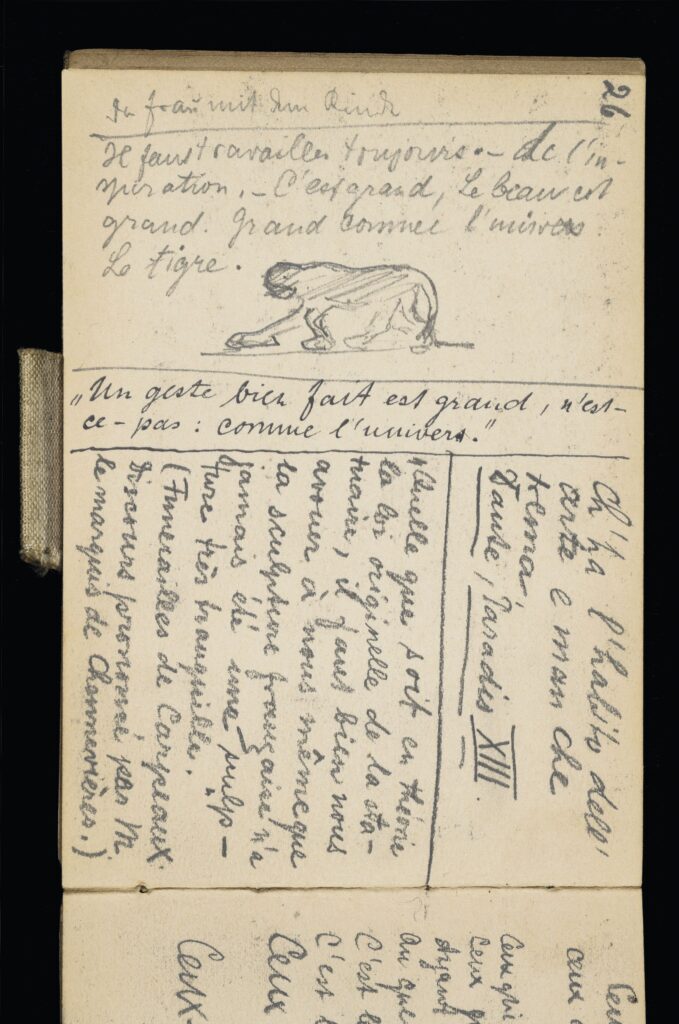 26
frau mit dem Kinde
Il faut travailler toujours. – de l'in-
spiration. – C'est grand, Le beau est
grand. Grand comme l'univers
Le tigre.
„Un geste bien fait est grand, n'est-
ce-pas: comme l'univers."
Ch'ha l'habito dell'
arte e man che
trema
Dante, Paradis XIII.
"Quelle que soit en théorie
la loi originelle de la sta-
tuaire, il faut bien nous
avouer à nous même que
la sculpture française n'a
jamais été une sculp-
ture très tranquille."
(Funerailles de Carpeaux.
Discours prononcé par M.
le marquis de Chennevières.)
ceux
Ceux qui
Ceux
Ayant
C'est
C'est
Ceux
Ceux-